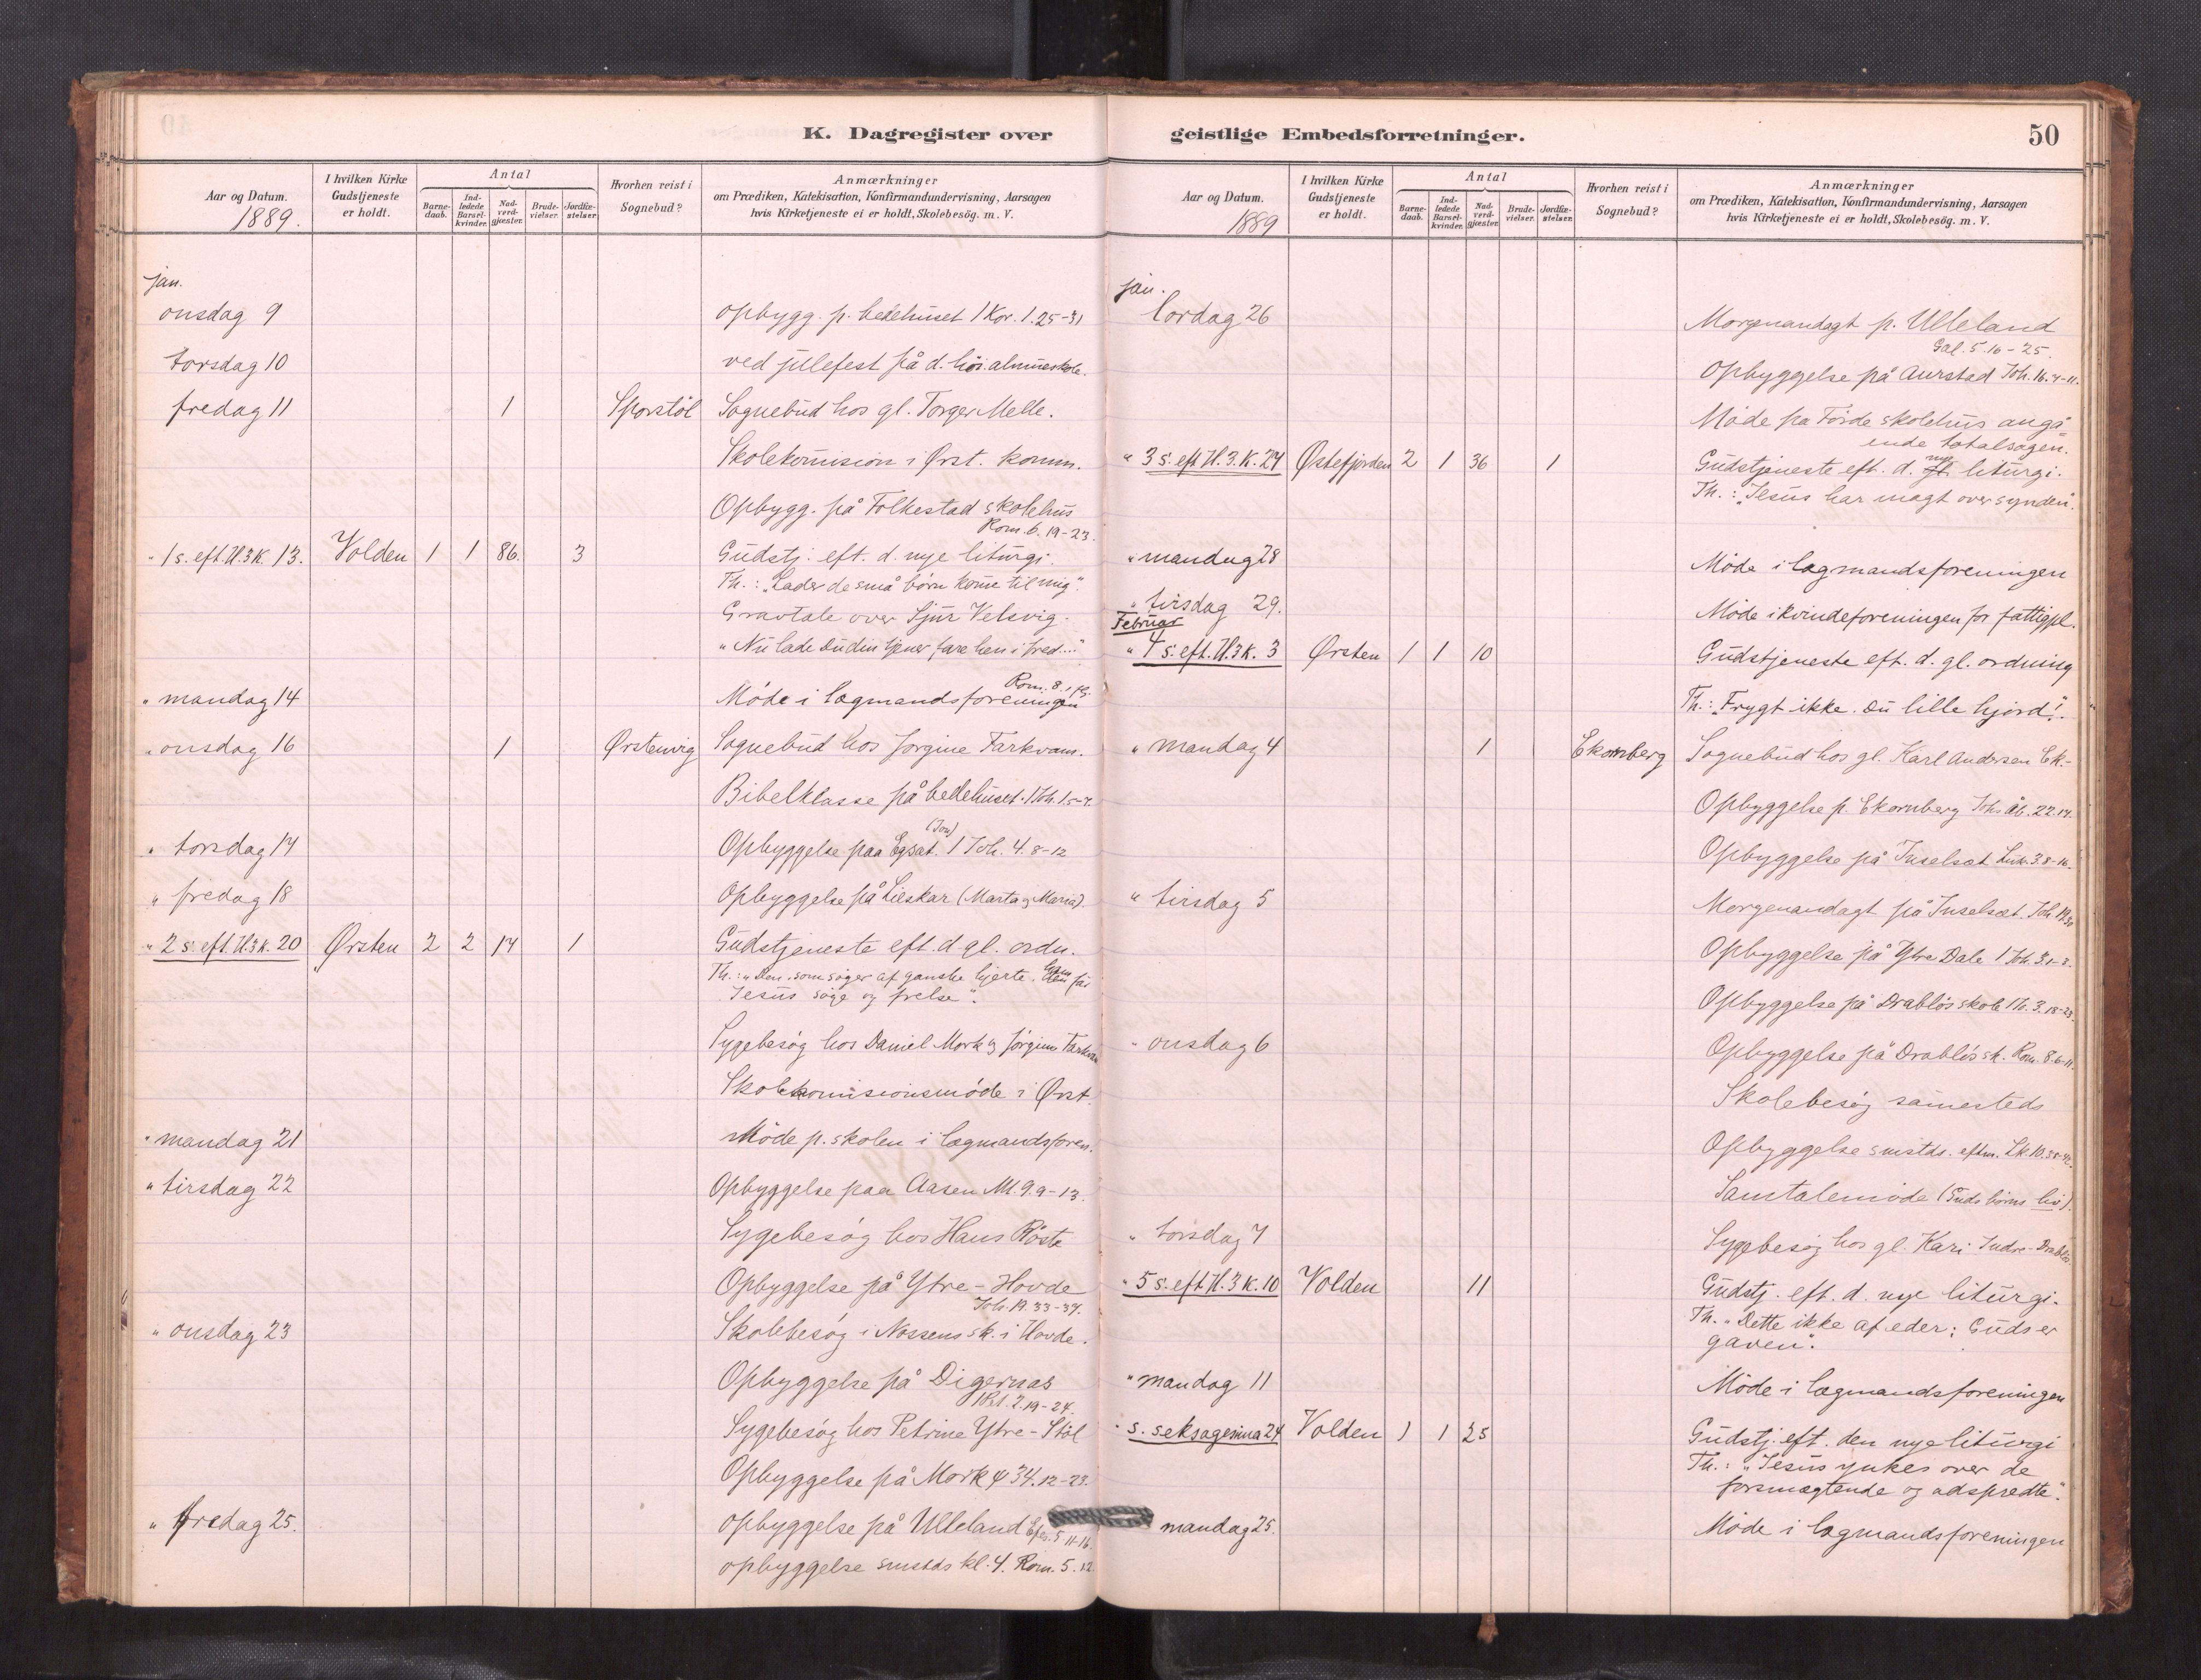 K. Dagregister over
geistlige Embedsforretninger.
50
Aar og Datum.
1889.
I hvilken Kirke
Gudstjeneste
er holdt.
Antal
Barne-
daab.
Ind-
ledede
Barsel-
kvinder.
Nad-
verd-
gjæster.
Brude-
vielser.
Jordfæ-
stelser.
Hvorhen reist i
Sognebud?
Anmærkninger
om Prædiken, Katekisation, Konfirmandundervisning, Aarsagen
hvis Kirketjeneste ei er holdt, Skolebesög. m. V.
jan.
onsdag 9 opbygg. p. bedehuset 1 Kor. 1. 25-31
torsdag 10 ved julefest på d. höi. almueskole.
fredag 11 1 Sporstöl Sognebud hos gl. Torger Melle.
Skolekomision i Ørst. komm.
Opbygg. på Folkestad skolehus
Rom. 6. 19-23.
" 1 s. eft. H.3K. 13. Volden 1 1 86. 3 Gudstj. eft. d. nye liturgi.
Th.: "Lader de små børn kome til mig".
Gravtale over Sjur Velsvig.
"Nu lade du din tjener fare hen i fred..."
Rom. 8. 1 flg.
" mandag 14 Möde i lægmandsforeningen
" onsdag 16 1 Ørstenvig Sognebud hos Jorgine Farkvam.
Bibelklasse på bedehuset. 1 Joh. 1. 5-7.
" torsdag 17 Opbyggelse paa Egsæt. (Jon) 1 Joh. 4. 8-12
" fredag 18 Opbyggelse på Lilskar (Marta og Maria).
" 2 s. eft. H.3K. 20 Ørsten 2 2 17 1 Gudstjeneste eft. d. gl. ordn.
Th.: "Den, som söger af ganske hjerte, får
Jesus söge og frelse".
Sygebesög hos Daniel Mork og Jörgine Farkvam
Skolekomisionsmöde i Ørst.
" mandag 21 Möde p. skolen i lægmandsforen.
" tirsdag 22 Opbyggelse paa Aasen M. 9. 9-13.
Sygebesög hos Hans Röste
Opbyggelse på Ytre-Hovde
Joh. 19. 33-37.
" onsdag 23 Skolebesög i Nossens sk. i Hovde.
Opbyggelse på Digernæs
1 Pet. 2. 19-24.
Sygebesög hos Petrine Ytre-Stöl
Opbyggelse på Mork ψ 34. 12-23.
" fredag 25. opbyggelse på Ulleland Efes. 5 11-16.
opbyggelse smstds kl. 4. Rom. 5. 12
Aar og Datum.
1889
I hvilken Kirke
Gudstjeneste
er holdt.
Antal
Barne-
daab.
Ind-
ledede
Barsel-
kvinder.
Nad-
verd-
gjæster.
Brude-
vielser.
Jordfæ-
stelser.
Hvorhen reist i
Sognebud?
Anmærkninger
om Prædiken, Katekisation, Konfirmandundervisning, Aarsagen
hvis Kirketjeneste ei er holdt, Skolebesög. m. V.
jan.
lördag 26 Morgenandagt p. Ulleland
Gal. 5. 16-25.
Opbyggelse på Aurstad Joh. 16. 7-11.
Möde på Förde skolehus angå-
ende totalsagen.
" 3 s. eft H.3.K. 27 Østefjorden 2 1 36 1 Gudstjeneste eft. d. nye liturgi.
Th.: "Jesus har magt over synden".
" mandag 28 Möde i lægmandsforeningen
" tirsdag 29. Möde i kvindeforeningen for fattigpl.
Februar
" 4 s. eft. H.3K. 3 Ørsten 1 1 10 Gudstjeneste eft. d. gl. ordning
Th.: "Frygt ikke. Du lille hjord!".
" mandag 4 1 Ekornberg Sognebud hos gl. Karl Andersen Ek.-
Opbyggelse p. Ekornberg Johs åb. 22. 17.
Opbyggelse på Inselsæt Luk. 3. 8-16.
" tirsdag 5 Morgenandagt på Inselsæt. Joh. 19. 30
Opbyggelse på Ytre Dale 1 Joh. 3. 1-3.
Opbyggelse på Drablös skole 1 Jh. 3. 18-23.
" onsdag 6 Opbyggelse på Drablös sk. Rom. 8. 6-11.
Skolebesög samesteds
Opbyggelse smstds. eftm. Lk 10. 38-42.
Samtalemöde (Guds börns liv).
" torsdag 7 Sygebesög hos gl. Kari Indre-Drablös
" 5 s. eft H.3K. 10 Volden 11 Gudstj. eft. d. nye liturgi.
Th. "Dette ikke af eder; Guds er
gaven".
" mandag 11 Möde i lægmandsforeningen
" s. seksagesima 24 Volden 1 1 25 Gudstj. eft. den nye liturgi
Th.: "Jesus ynkes over de
forsmægtende og adspredte".
mandag 25. Möde i lægmandsforeningen